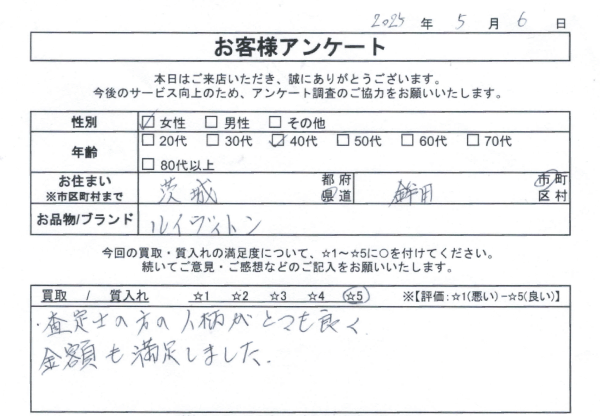 2025 年 5 月 6 日
お客様アンケート
本日はご来店いただき、誠にありがとうございます。
今後のサービス向上のため、アンケート調査のご協力をお願いいたします。
性別 ☑ 女性 □ 男性 □ その他
年齢 □ 20代 □ 30代 ☑ 40代 □ 50代 □ 60代 □ 70代
□ 80代以上
お住まい ※市区町村まで 茨城 都 府 県 道 鉾田 市 町 区 村
お品物/ブランド ルイヴィトン
今回の買取・質入れの満足度について、☆1～☆5に○を付けてください。
続いてご意見・ご感想などのご記入をお願いいたします。
買取 / 質入れ ☆1 ☆2 ☆3 ☆4 ☆5 ※【評価:☆1(悪い)－☆5(良い)】
・査定士の方の人柄がとても良く
金額も満足しました.